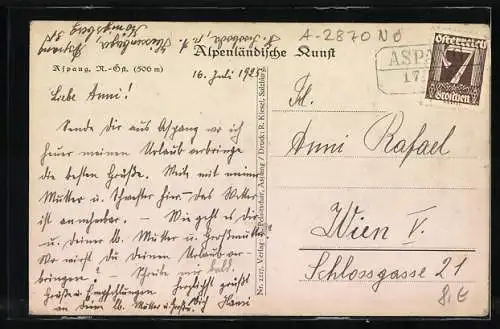 A-2870 NÖ
Alpenländische Kunst
Aspang, N.-Öst. (506 m)
16. Juli 1925
Liebe Anni!
Sende Dir aus Aspang wo ich
heuer meinen Urlaub verbringe
die besten Grüße. Weile mit meiner
Mutter u. Schwester hier. Das Wetter
ist annehmbar. – Wie geht es Dir
u. Deiner lb. Mutter u. Großmutter?
Wo wirst Du Deinen Urlaub ver-
bringen? – Schreibe mir bald.
Grüße u. Empfehlungen Herzlichst grüßt
an Deine lb. Mutter u. Dich Hansi
Druck: R. Kiesel, Salzburg.
ASPA
17.
Österreich
7
Groschen
Frl.
Anni Rafael
Wien V.
Schlossgasse 21
8,-E